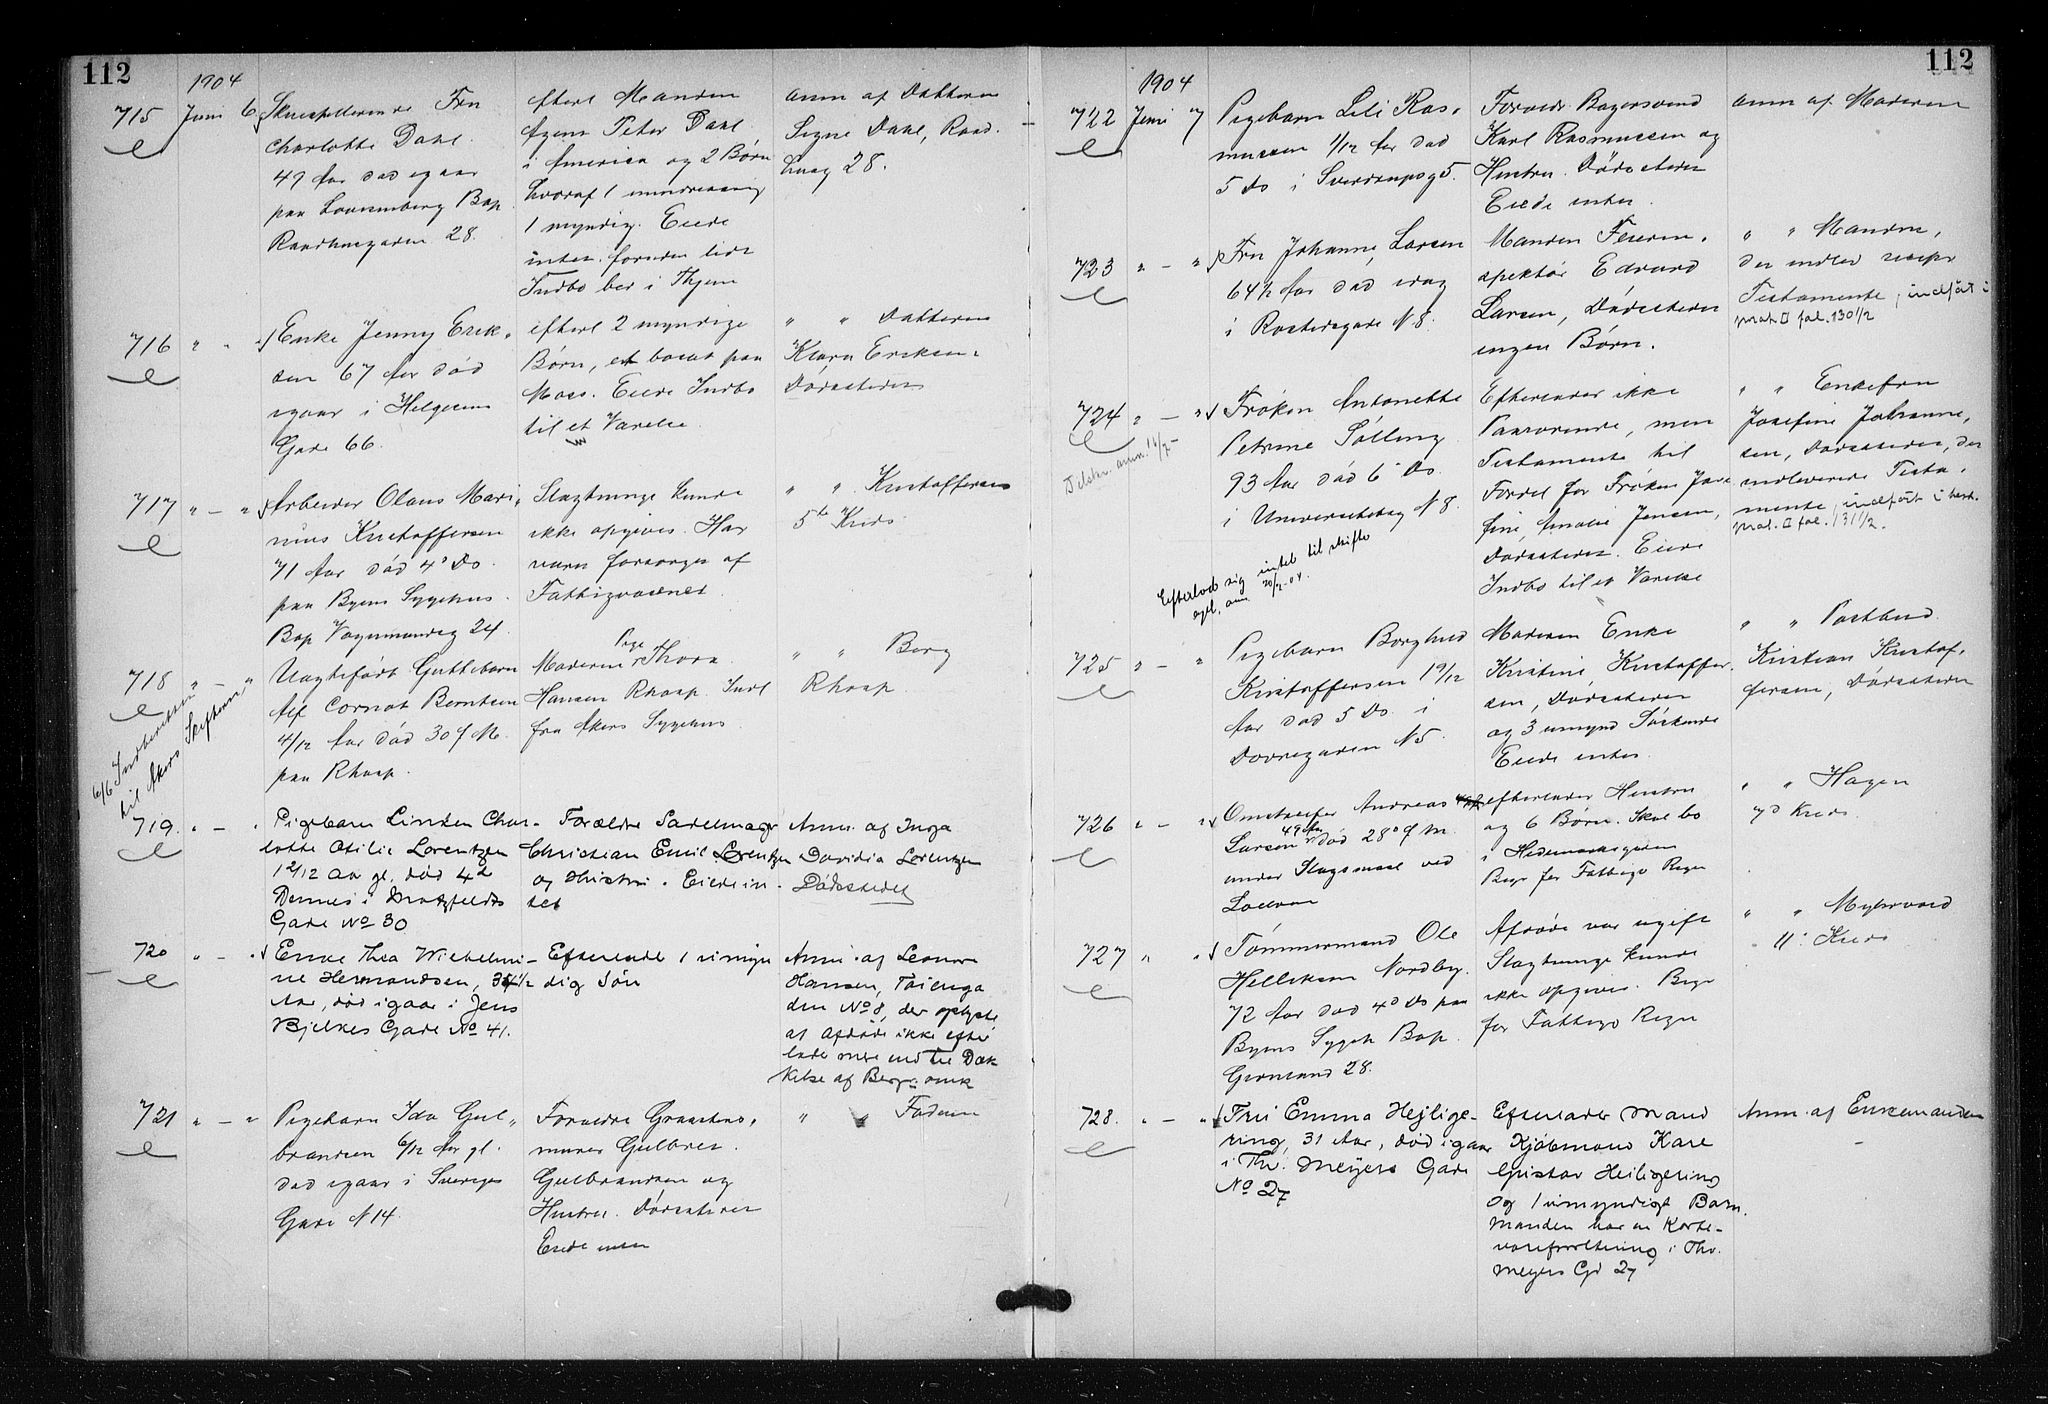 112
1904
715
Juni 6
Skuespillerinde Fru
Charlotte Dahl
49 Aar død igaar
paa Lovisenberg Bop
Raadhusgaden 28.
efterl Manden
Agent Peter Dahl
i America og 2 Børn
hvoraf 1 mindreaarig
1 myndig. Eiede
intet foruden lidt
Indbo her i Hjem
Anm af Datteren
Signe Dahl, Raad.
husg 28.
716
" " "
Enke Jenny Erik-
sen 67 Aar død
igaar i Helgesens
Gade 66.
efterl 2 myndige
Børn, et bosat paa
Moss. Eiede Indbo
til et Værelse
" " Datteren
Klara Eriksen.
Dødsstedet
717
" — "
Arbeider Olaus Mari-
nius Kristoffersen
71 Aar død 4' Ds
paa Byens Sygehus.
Bop Vognmandsg 24.
Slægtninge kunde
ikke opgives. Har
været forsørget af
Fattigvæsenet.
" " Kristoffersen
5te Kreds
718
" — "
6/6 Indberettet
til Akers Skifteret
Uægtefødt Guttebarn
Alf Cornat Berntsen
4/12 Aar død 30 f M.
paa Rhosp.
Moderen Pige Thora
Hansen Rhosp. Indl
fra Akers Sygehus
" " Berg
Rhosp.
719.
" — "
Pigebarn Linken Char-
lotte Otilie Lorentzen
1 2/12 Aar gl. død 4d
Dennes i Motzfeldts
Gade No 30
Forældre Sadelmager
Christian Emil Lorentzen
og Hustru. Eiede in-
tet
Anm. af Inga
Davidia Lorentzen
Dødsstedet
720
" — "
Enke Thea Wilhelmi-
ne Hermandsen, 34 1/2
Aar, død igaar i Jens
Bjelkes Gade No 41.
Efterlade 1 umyn
dig Søn
Anm. af Leonore
Hansen, Tøienga
den No 8, der oplyste
at Afdøde ikke efter
lader mere end til Dæk
kelse af Begr. omk
721
" — "
Pigebarn Ida Gul-
brandsen 6/12 Aar gl.
død igaar i Sveriges
Gade N 14.
Forældre Graastens-
murer Gulbrei
Gulbrandsen og
Hustru. Dødsstedet
Eiede intet
" " Faderen
112
1904
722
Juni 7
Pigebarn Lili Ras-
mussen 1/12 Aar død
5 Ds i Sverdrupsg 5.
Forældr Bagersvend
Karl Rasmussen og
Hustru. Dødsstedet
Eiede intet.
Anm af Moderen
723
" — "
Fru Johanne Larsen
64 1/2 Aar død idag
i Rostedsgade N 8.
Manden Feierin-
spektør Edvard
Larsen, Dødsstedet
ingen Børn.
" " Manden,
der indlev recipr
Testamente, indført i
prot. II fol. 130 1/2
724
" — "
Tilstr. anm. 14/7 -
Frøken Antonette
Petrine Sølling
93 Aar død 6' Ds.
i Universitetsg N 8.
Efterlod sig intet til skifte
opl. anm. 20/7-04.
Efterlader ikke
Paarørende, men
Testamente til
Fordel for Frøken Jose
fine Amalie Jensen,
Dødsstedet. Eiede
Indbo til et Værelse
" " Enkefru
Josefine Johanne-
sen, Dødsstedet, der
indleverede Testa-
mente, indført i test.
prot. II fol. 131 1/2.
725
" — "
Pigebarn Borghild
Kristoffersen 1 9/12
Aar død 5 Ds i
Dovregaden N 5.
Moderen Enke
Kristine Kristoffer-
sen, Dødsstedet
og 3 umynd Søskende
Eiede intet.
" " Postbud
Kristian Kristof-
fersen, Dødsstedet
726
" — "
Omstreifer Andreas
Larsen 49 Aar død 28' f M.
under Slagsmaal ved
Loelven
efterlader Hustru
og 6 Børn. Skal bo
i Hedemarksgaden
Begr for Fattigv Regn
" " Hagen
7d Kreds.
727
" "
Tømmermand Ole
Helliksen Nordby.
72 Aar død 4' Ds paa
Byens Sygeh Bop.
Grønland 28.
Afdøde var ugift
Slægtninge kunde
ikke opgives. Begr
for Fattigv Regn
" " Myhrvold
11' Kreds
728.
" — "
Fru Emma Hejlige-
ring, 31 Aar, død igaar
i Th. Meyers Gade
No 27
Efterlader Mand
Kjøbmand Karl
Gustav Heiligering
og 1 umyndigt Barn.
Manden har en Korte-
vareforretning i Thv.
Meyers Gd 27
Anm. af Enkemanden